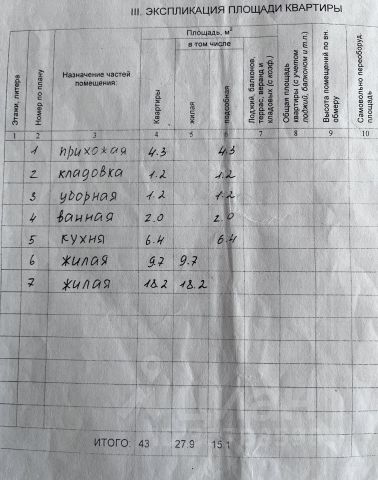 III. ЭКСПЛИКАЦИЯ ПЛОЩАДИ КВАРТИРЫ
Этажи, литера
Номер по плану
Назначение частей помещения:
Площадь, м²
в том числе
Квартиры
жилая
подсобная
Лоджий, балконов, террас, веранд и кладовых (с коэф.)
Общая площадь квартиры (с учетом лоджий, балконом и т.п.)
Высота помещений по вн. обмеру
Самовольно переоборуд. площадь
1 2 3 4 5 6 7 8 9 10
1 прихожая 4.3 4.3
2 кладовка 1.2 1.2
3 уборная 1.2 1.2
4 ванная 2.0 2.0
5 кухня 6.4 6.4
6 жилая 9.7 9.7
7 жилая 18.2 18.2
ИТОГО: 43 27.9 15.1